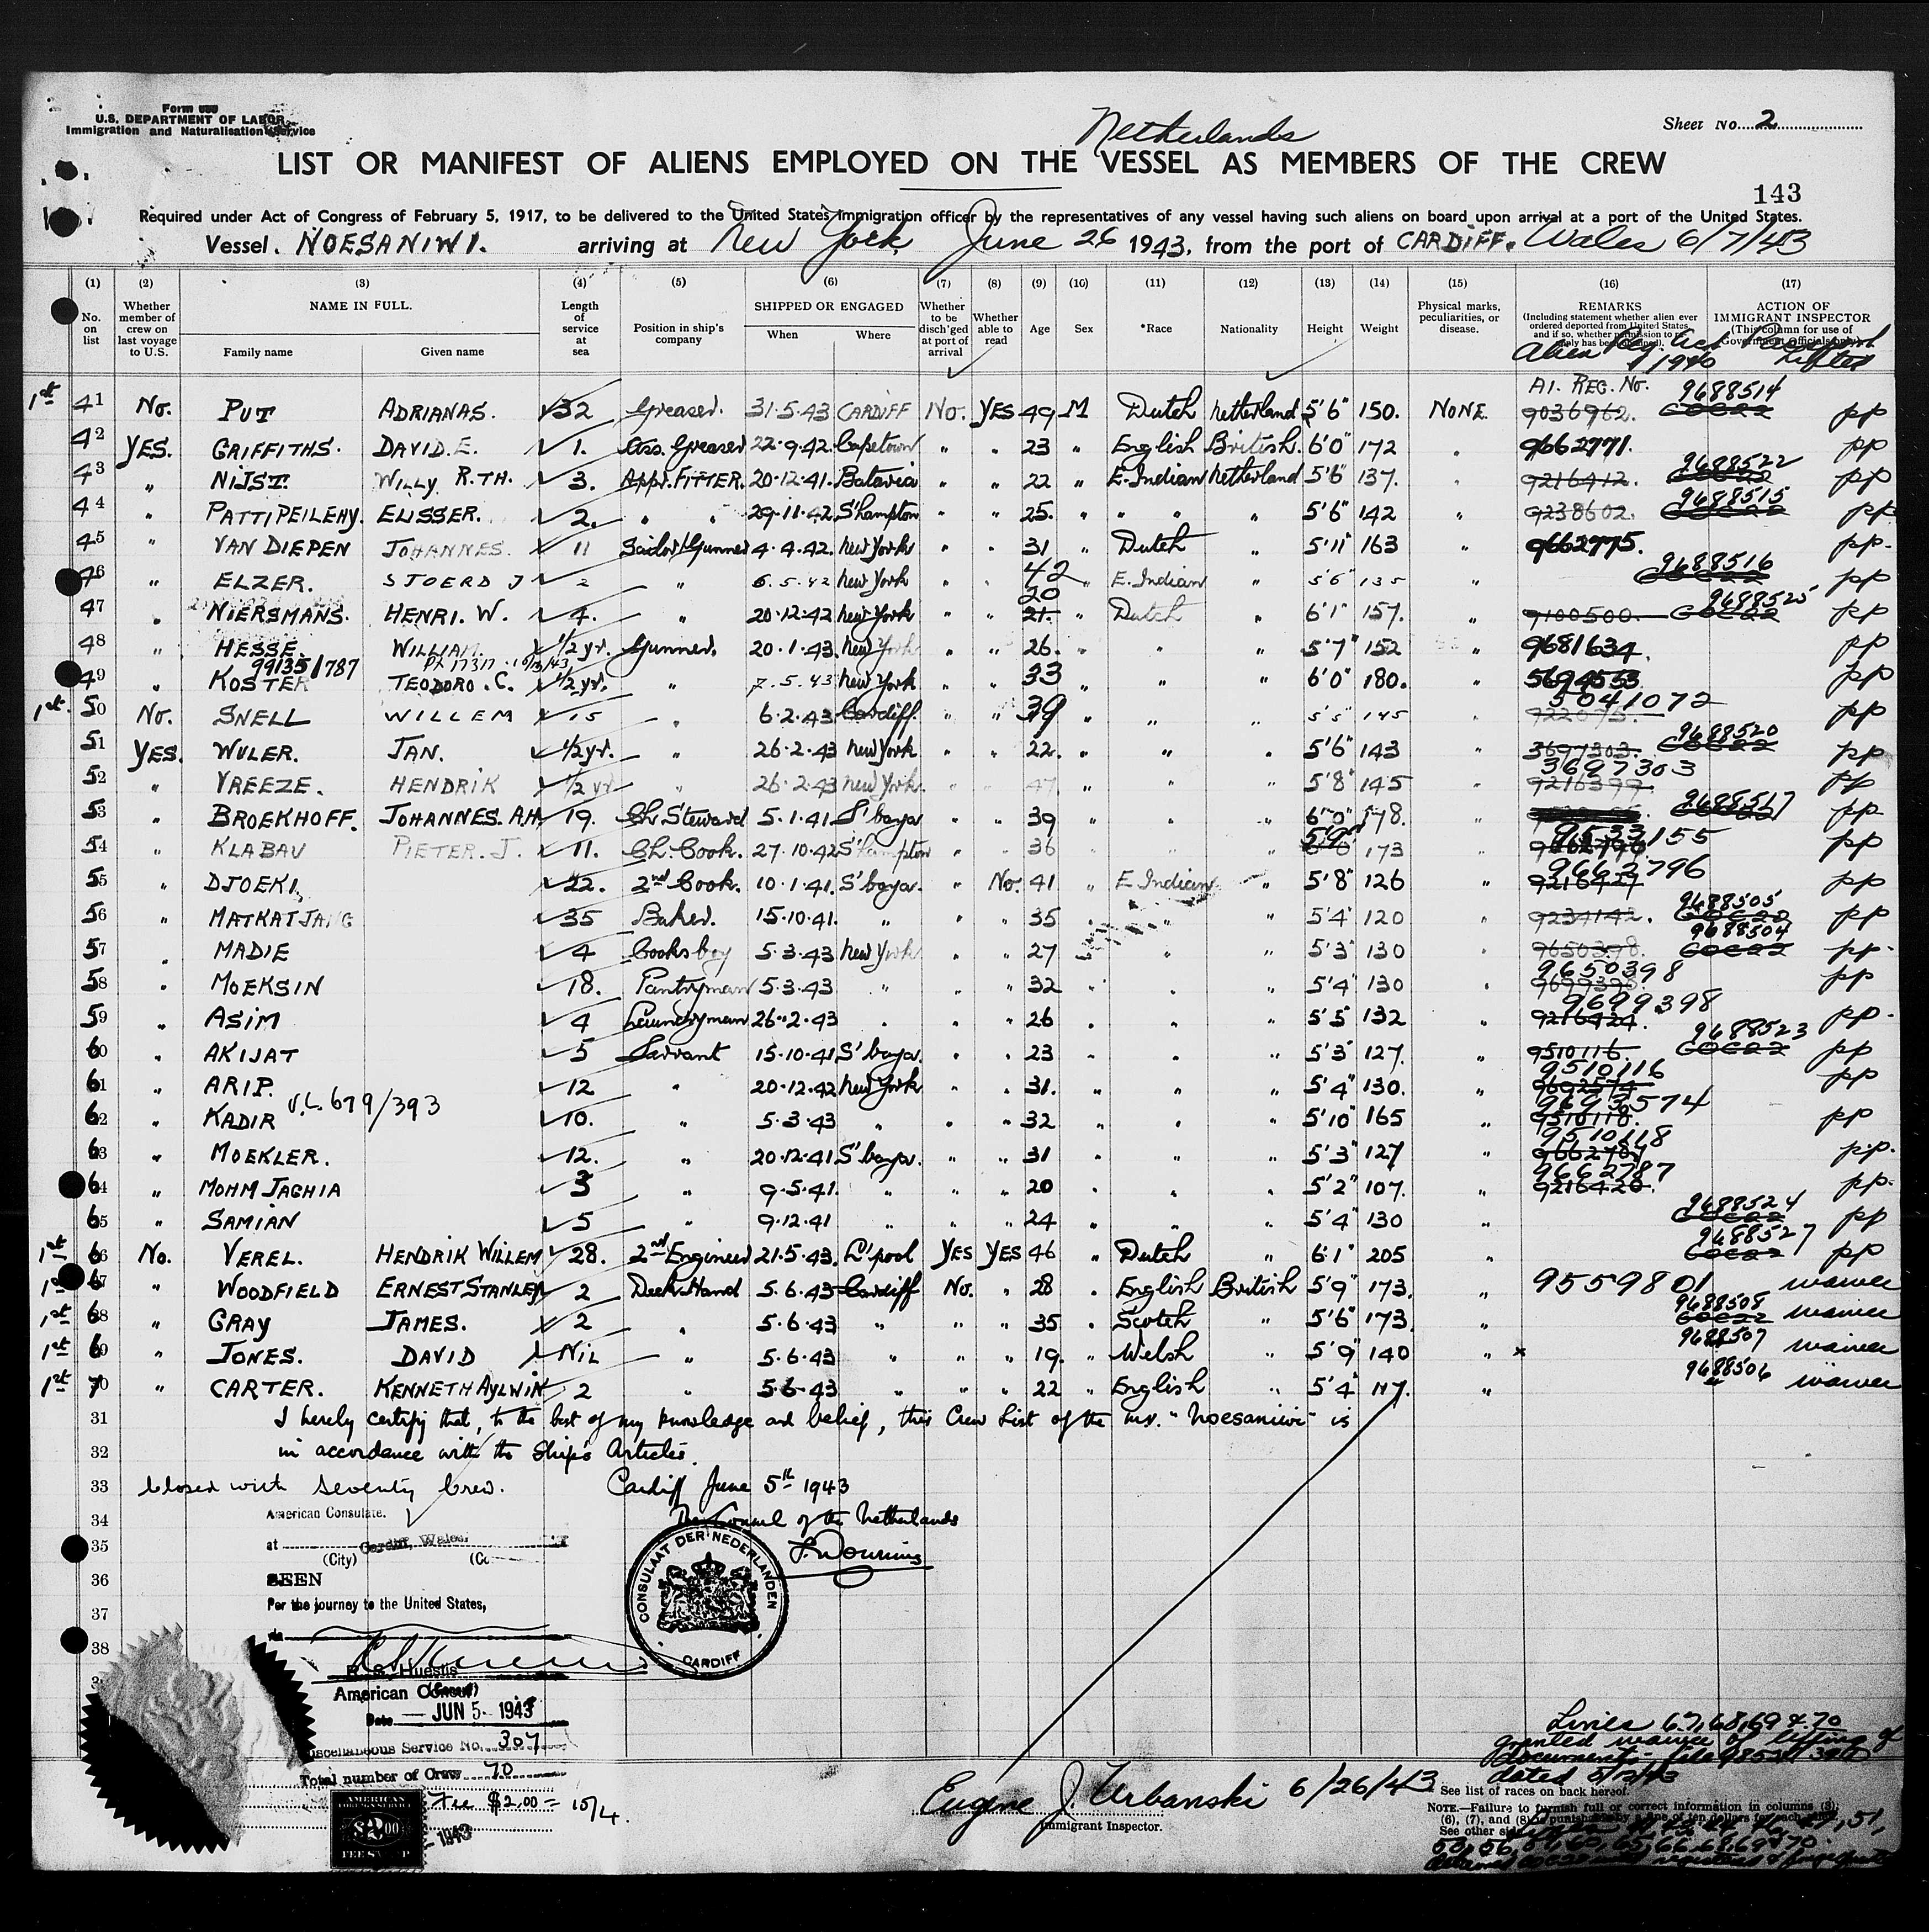 Form
U.S. DEPARTMENT OF LABOR
Immigration and Naturalisation Service
Netherlands
Sheet No. 2
LIST OR MANIFEST OF ALIENS EMPLOYED ON THE VESSEL AS MEMBERS OF THE CREW
143
Required under Act of Congress of February 5, 1917, to be delivered to the United States immigration officer by the representatives of any vessel having such aliens on board upon arrival at a port of the United States.
Vessel. NOESANIWI. arriving at New York June 26 1943, from the port of CARDIFF. Wales 6/7/43
(1) (2) (3) (4) (5) (6) (7) (8) (9) (10) (11) (12) (13) (14) (15) (16) (17)
No. on list Whether member of crew on last voyage to U.S. NAME IN FULL. Family name Given name Length of service at sea Position in ship's company SHIPPED OR ENGAGED When Where Whether to be disch'ged at port of arrival Whether able to read Age Sex *Race Nationality Height Weight Physical marks, peculiarities, or disease. REMARKS (Including statement whether alien ever ordered deported from United States and if so, whether permission to re- ACTION OF IMMIGRANT INSPECTOR (This column for use of Government Officials only)
Alien Reg. Act 1940
A1. REG. No. 9688514
1st 41 No. PUT ADRIANAS. 32 Greaser. 31·5·43 CARDIFF No. YES 49 M Dutch Netherland 5'6" 150. NONE. 9036962. pp
42 YES. GRIFFITHS. DAVID. E. 1. Ass. Greaser 22·9·42 Capetown " " 23 " English British. 6'0" 172 " 9662771. pp
9688522
43 " NIJST. WILLY R.TH. 3. Appr. FITTER. 20·12·41. Batavia " " 22 " E.Indian Netherland 5'6" 137. " 9216412. pp
9688515
44 " PATTIPEILEHY. ELISSER. 2. " " 29·11·42. S'hampton " " 25. " " " " 5'6" 142 " 9238602. pp
45 " VAN DIEPEN JOHANNES. 11 Sailor/Gunner 4·4·42. New York " " 31 " Dutch " 5'11" 163 " 9662775. pp.
9688516
46 " ELZER. SJOERD J 2 " 6.5.42 New York " " 42 " E. Indian " 5'6" 135 " pp
20 9688525
47 " NIERSMANS. HENRI. W. 4. " 20·12·42 New York " " 21. " Dutch " 6'1" 157. " 9100500. pp
48 " HESSE. WILLIAM. 1/2 yr. Gunner. 20·1·43. New York " " 26. " " " 5'7" 152 9681634. pp
99135/787
49 " KOSTER TEODORO. C. 1/2 yr. " 7.5.43 New York " " 33 " " " 6'0" 180. " pp
5041072
1st. 50 No. SNELL WILLEM 15 " 6·2·43 Cardiff. " " 39 " " " 5'5" 145 " pp
9688520
51 YES. WULER. JAN. 1/2 yr. " 26·2·43 New York " " 22. " " " 5'6" 143 " 3697303. pp
3697303
52 " VREEZE. HENDRIK 1/2 yr " 26·2·43 New York. " " 47 " " " 5'8" 145 " 9216399. pp
9688517
53 " BROEKHOFF. JOHANNES. A.H. 19. Ch. Steward 5·1·41. S'baya " " 39 " " " 6'0" 178. " pp
5'9"
54 " KLABAU PIETER. J. 11. Ch. Cook. 27·10·42 S'hampton " " 36 " " " 173 " pp
9662796
55 " DJOEKI. 22. 2nd Cook. 10·1·41. S'baya. " No. 41 " E Indian. " 5'8" 126 " 9216427 pp
9688505
56 " MATKATJANG 35 Baker. 15·10·41. " " " 35 " " " 5'4" 120 " 9234142. pp
9688504
57 " MADIE 4 Cooks boy 5·3·43 New York " " 27 " " " 5'3" 130 " 9650398. pp.
9650398
58 " MOEKSIN 18. Pantryman 5·3·43 " " " 32 " " " 5'4" 130 " pp
9699398
59 " ASIM 4 Laundryman 26·2·43 " " " 26 " " " 5'5" 132 " 9216424. pp.
9688523
60 " AKIJAT 5 Servant 15·10·41. S'baya. " " 23 " " " 5'3" 127. " 9510116. pp
9510116
61 " ARIP. 12 " 20·12·42 New York " " 31. " " " 5'4" 130. " pp
V.L. 679/393
62 " KADIR 10. " 5·3·43 " " " 32 " " " 5'10" 165 " 9510118. pp
9510118
63 " MOEKLER. 12. " 20·12·41 S'baya. " " 31 " " " 5'3" 127 " pp.
9662787
64 " MOHM JAGHIA 3 " 9·5·41. " " " 20 " " " 5'2" 107. " 9216420. pp.
9688524
65 " SAMIAN 5 " 9·12·41 " " " 24 " " " 5'4" 130 " pp
9688527
1st 66 No. VEREL. HENDRIK WILLEM 28. 2nd Engineer 21·5·43. L'pool YES YES 46 " Dutch " 6'1" 205 " pp
1st 67 " WOODFIELD ERNEST STANLEY 2 Deck Hand 5·6·43 Cardiff No. " 28 " English British 5'9" 173. " 9559801 waiver
9688508
1st 68 " GRAY JAMES. 2 " 5·6·43 " " " 35 " Scotch " 5'6" 173. " waiver
1st 69 " JONES. DAVID NIL " 5·6·43 " " " 19. " Welsh " 5'9" 140 " x 9688507 waiver
1st 70 " CARTER. KENNETH AYLWIN 2 " 5·6·43 " " " 22 " English " 5'4" 117. " 9688506 waiver
31 I hereby certify that, to the best of my knowledge and belief, this Crew List of the m.v. "Noesaniwi" is
32 in accordance with the Ship's Articles.
33 Closed with seventy crew. Cardiff June 5th 1943
34 American Consulate. The Consul of the Netherlands
35 at Cardiff, Wales.
(City)
36 SEEN
37 For the journey to the United States,
38
CONSULAAT DER NEDERLANDEN CARDIFF
R. S. Huestis
American Consul
Date JUN 5- 1943
Miscellaneous Service No. 307
Total number of Crew 70
Fee $2.00 = 10/4
AMERICAN FOREIGN SERVICE $2.00 FEE STAMP
1943
Lines 67, 68, 69 & 70
granted waiver of
Eugene J. Urbanski 6/26/43
Immigrant Inspector.
See list of races on back hereof.
NOTE.—Failure to furnish full or correct information in columns (3),
(6), (7), and (8) is punishable by a fine of ten dollars for each
See other side